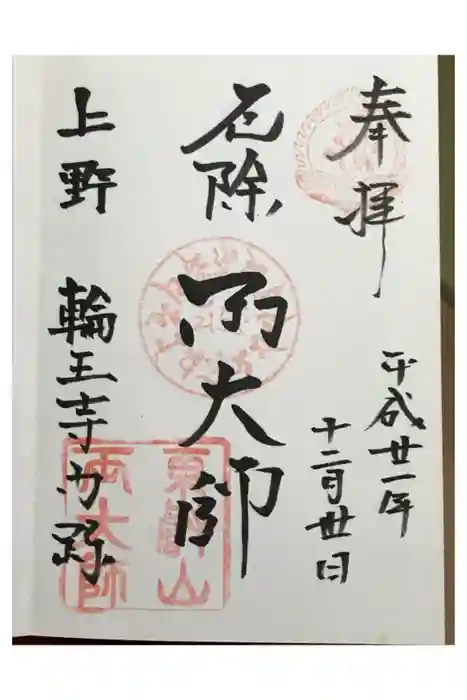 奉拝
平成廿一年
十二月丗日
厄除
両大師
上野
輪王寺
東叡山
両大師